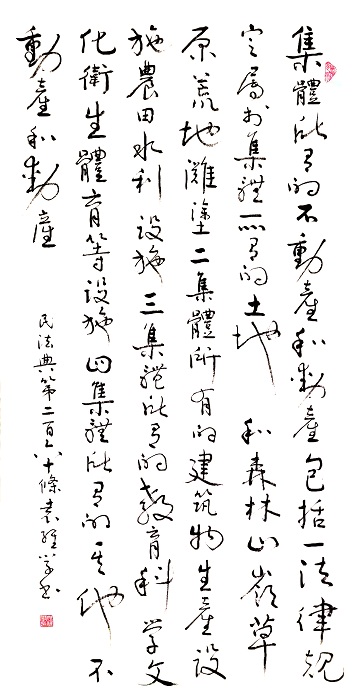 集體所有的不動產和動產包括一法律規
定屬於集體所有的土地和森林山嶺草
原荒地灘塗二集體所有的建筑物生產設
施農田水利設施三集體所有的教育科學文
化衛生體育等設施四集體所有的其他不
動產和動產
民法典第二百六十條袁維学书